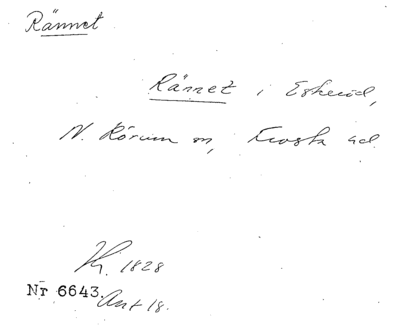 Rännet
Rännet i Eskeröd,
N. Rörum sn, Frosta hd
Kr. 1828
Nr 6643. Ant 18.